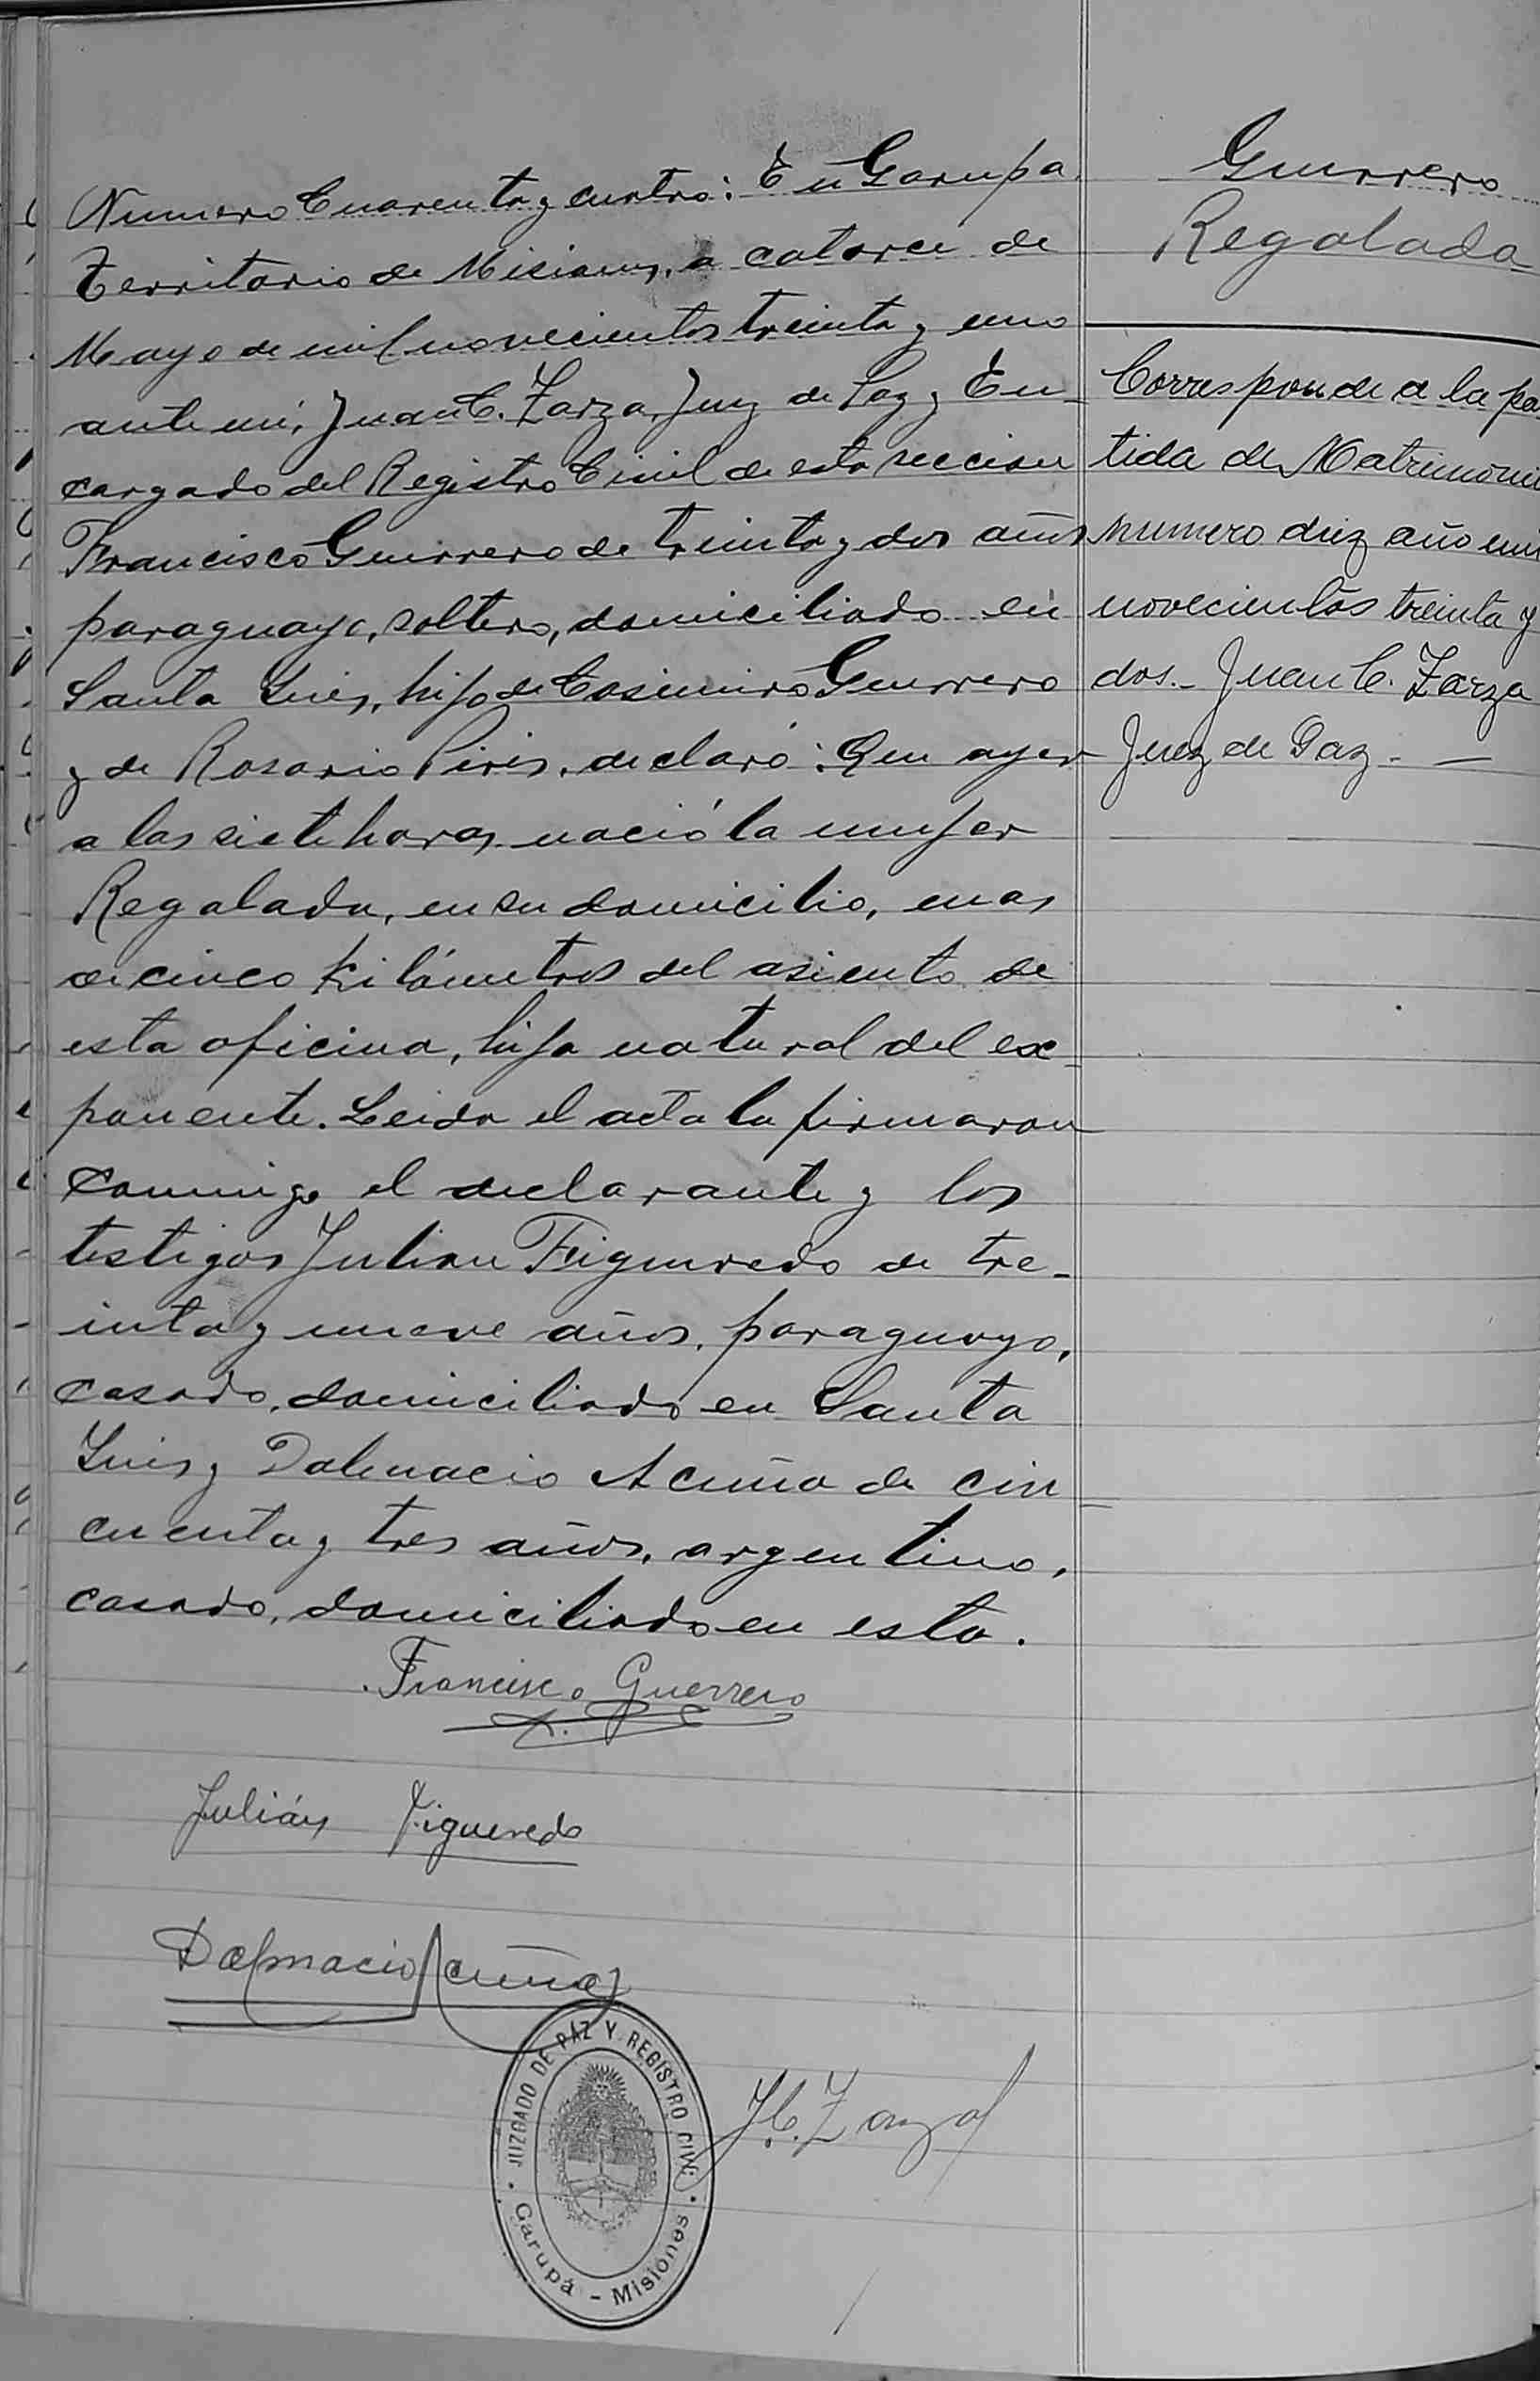 Numero Cuarenta y cuatro: En Garupa
Territorio de Misiones, a catorce de
Mayo de mil novecientos treinta y uno
ante mi, Juan C. Zarza, Juez de Paz y En-
cargado del Registro Civil de esta seccion
Francisco Guerrero de treinta y dos años
paraguayo, soltero, domiciliado en
Santa Ines, hijo de Casimiro Guerrero
y de Rosario Piris, declaró: Que ayer
a las siete horas nació la mujer
Regalada, en su domicilio, a mas
de cinco kilómetros del asiento de
esta oficina, hija natural del ex-
ponente. Leida el acta la firmaron
conmigo el declarante y los
testigos Julian Figueredo de tre-
inta y nueve años, paraguayo,
casado, domiciliado en Santa
Ines y Dalmacio Acuña de cin-
cuenta y tres años, argentino,
casado, domiciliado en esta.
Francisco Guerrero
Julián Figueredo
Dalmacio Acuña
J. C. Zarza
JUZGADO DE PAZ Y REGISTRO CIVIL
Garupá - Misiones
Guerrero
Regalada
Corresponde a la par
tida de Matrimonio
numero diez año mil
novecientos treinta y
dos.- Juan C. Zarza
Juez de Paz. —